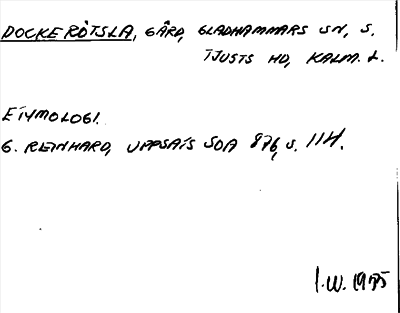 DOCKERÖTSLA, GÅRD, GLADHAMMARS SN, S.
TJUSTS HD, KALM. L.
ETYMOLOGI.
G. REINHARD, UPPSATS SOA 876, S. 114.
I.W. 1975